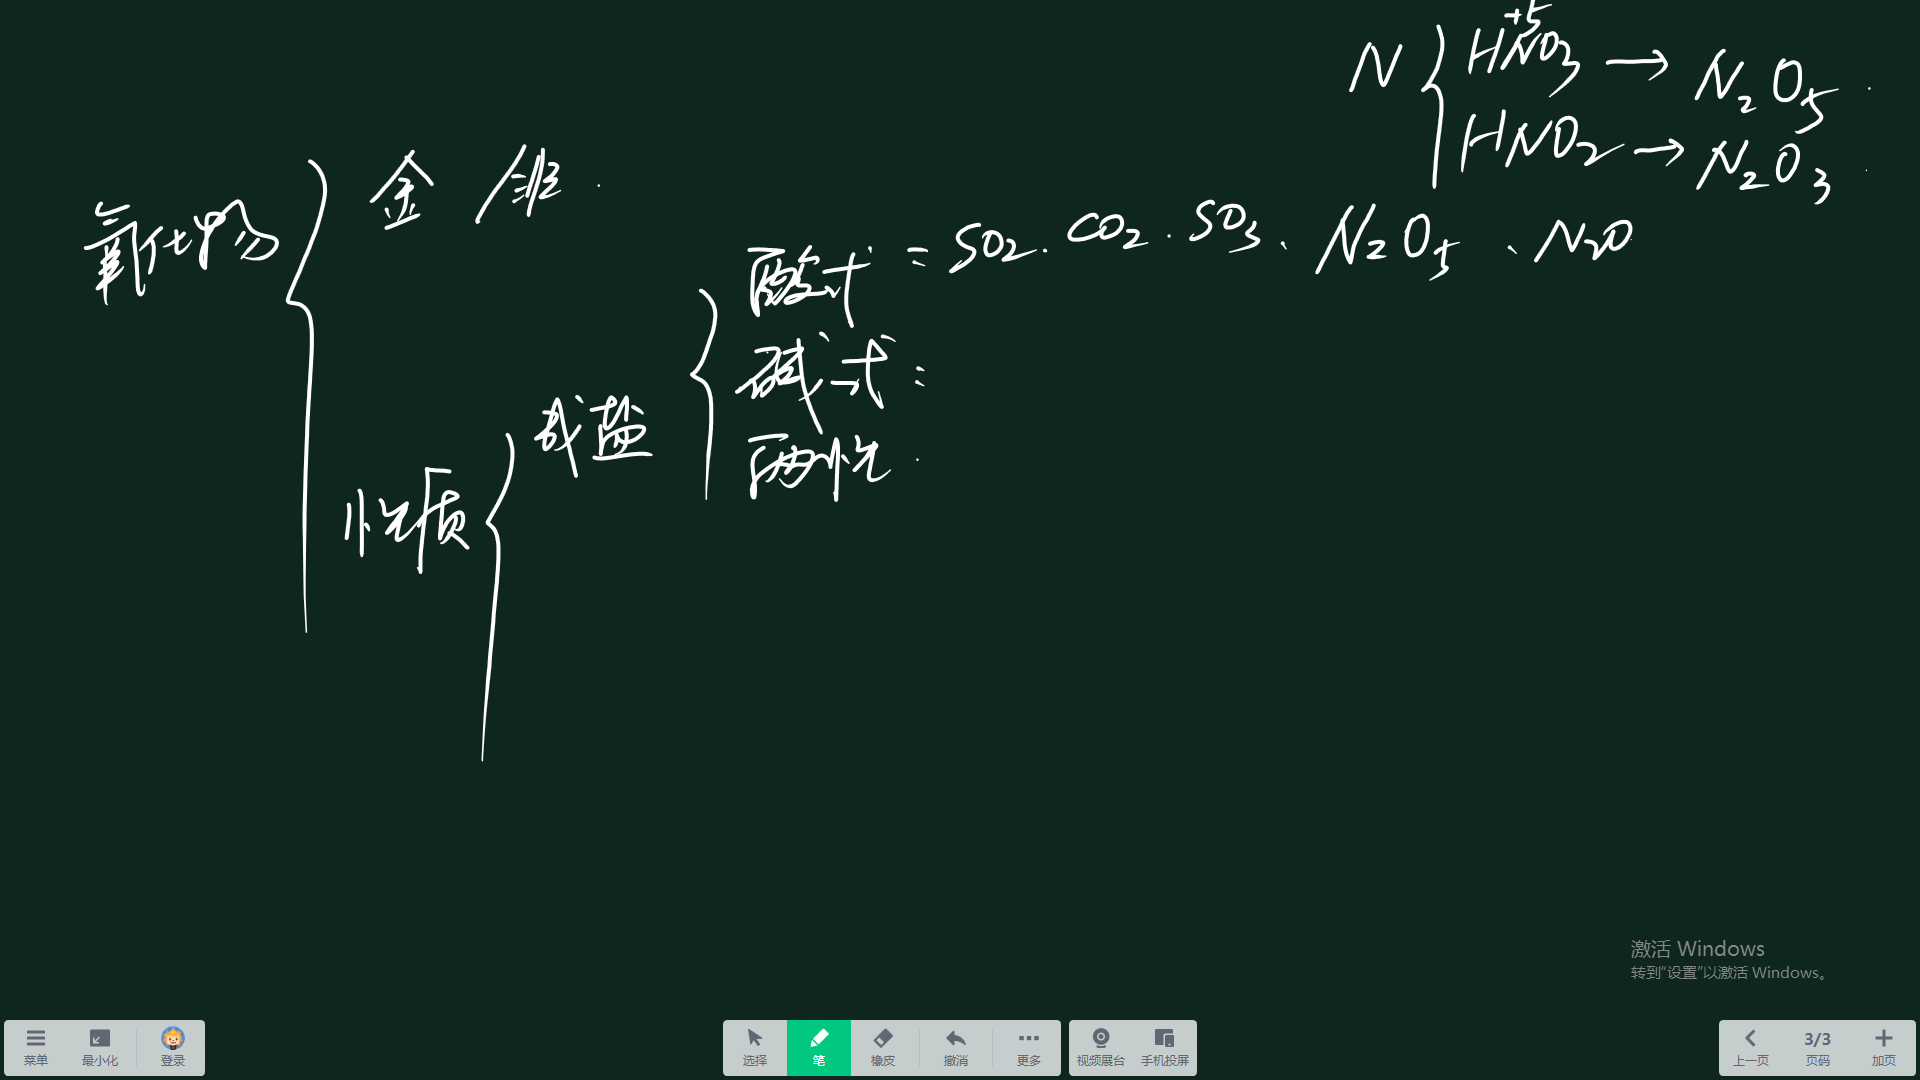 +5
N { HNO3 → N2O5 .
HNO2 → N2O3 .
氧化物 { 金 / 非 .
性质 { 成盐 {
酸式 : SO2 . CO2 . SO3 、 N2O5 、 N2O
碱式 :
两性 .
激活 Windows
转到“设置”以激活 Windows。
菜单 最小化 登录
选择 笔 橡皮 撤消 更多 视频展台 手机投屏
3/3
上一页 页码 加页